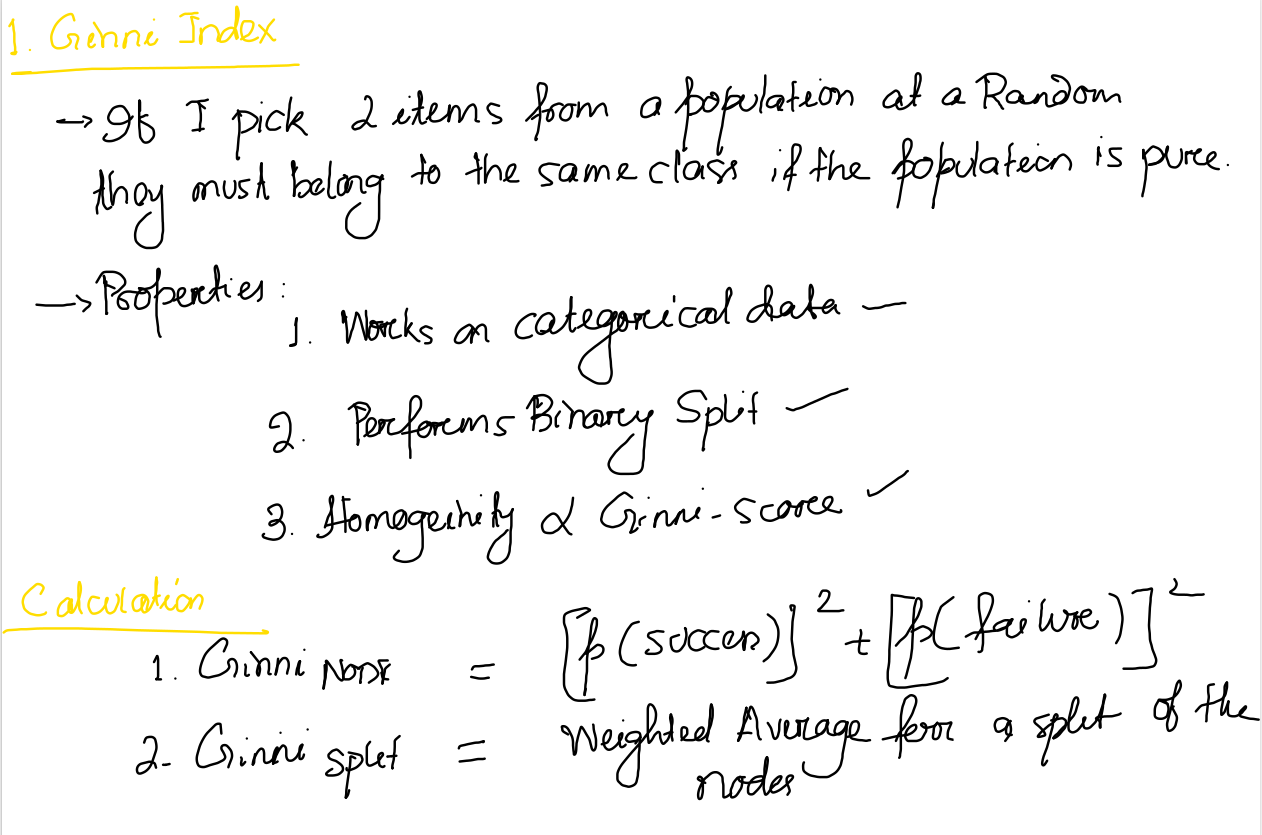 1. Ginni Index
→ If I pick 2 items from a population at a Random
they must belong to the same class if the population is pure.
→ Properties:
1. Works on categorical data —
2. Performs Binary Split
3. Homogeinity α Ginni-score ✓
Calculation
1. Ginni NODE = [p(success)]² + [p(failure)]²
2. Ginni split = Weighted Average for a split of the
nodes